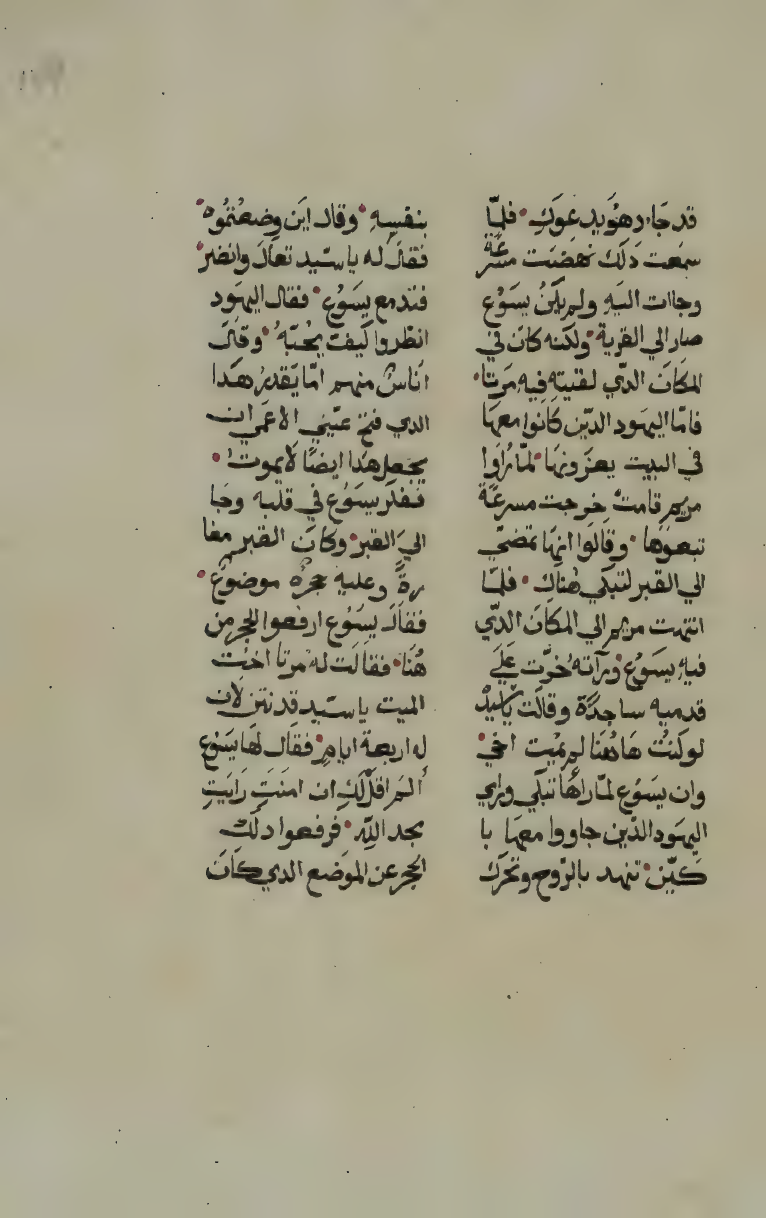 قد جَاء وهُوَ يدعوَكِ • فلمّا
سمعت دَلك نهضَت مسرعَة
وجاات اليَهِ ولم يكنُ يسَوُع
صار الي القرية • ولكنه كان في
المكَانَ الدّي لقيتهِ فيهِ مَرتا •
فامّا اليهَود الدّين كَانوا معهَا
في البَيت يعزونهَا • لمّا رَاوا
مريم قامتْ خرجت مسرعَة
تبعوَها • وقالوَا انهَا تمضيّ
الي القبر لتبكي هُناكِ • فلمّا
انتهت مريم الي المكَان الدّي
فيهِ يسَوُع ورآته خرّت عَليَ
قدميه ساجدَة وقالت يا سيدْ
لو كنتْ هَاهُنا لم يمَيت اخي •
وان يسَوُع لمّا راهَا تبكّي وراي
اليهَود الدّين جاووا معهَا با
كيّن • تنهد بالرّوح وتحَرك
بنفسِهِ • وقال اين وضعتموُه •
فقالَ له يا سَيّد تعالَ وانضر •
فتدمع يسَوُع • فقال اليهَود
انظروا كَيفَ يحُبّهُ • وقال
انَاسٌ منهم امّا يَقدرُ هَدا
الدي فتح عيّني الاعمَى ان
يجعل هَدا ايضًا لَا يموت •
ففكر يسَوُع في قلبه وجا
اليَ القبر • وكانَ القبر مغا
رةً وعليه حجرهُ موضوَع •
فقالَ يسَوُع ارفعوا الحجر من
هُنا • فقالَت له مرتا اخت
الميت يا سَيّد قد نتن لان
له اربعة ايامِ • فقال لهَا يسَوع
الَمَ اقلّ لكِ ان امنتِ رَايتِ
مجد اللّه • فرفعوا دلك
الحجر عن الموَضع الدي كَانَ